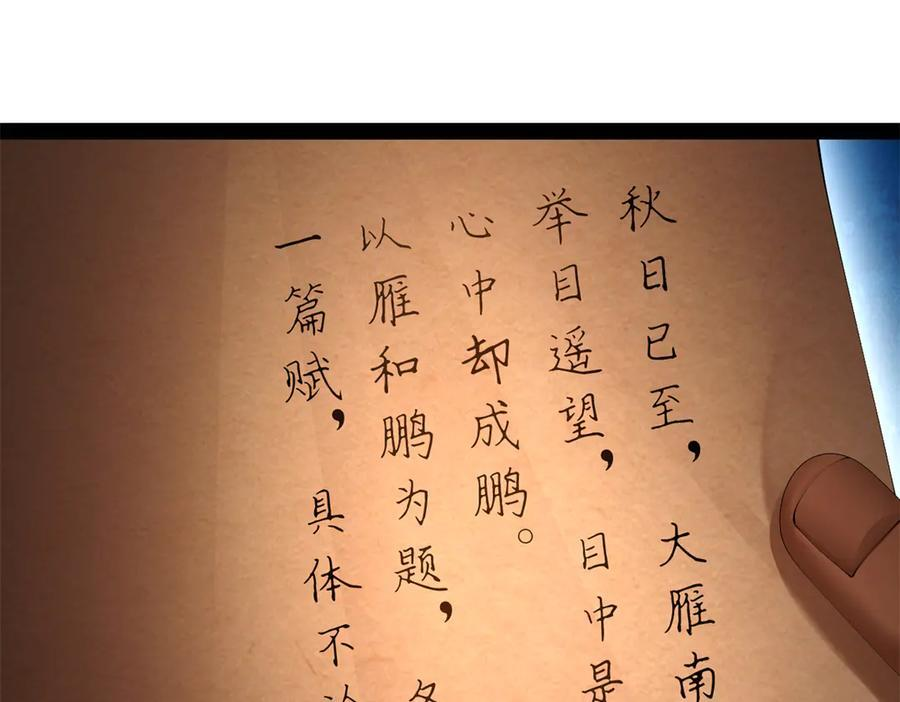 秋日已至，大雁南
举目遥望，目中是
心中却成鹏。
以雁和鹏为题，
一篇赋，具体不